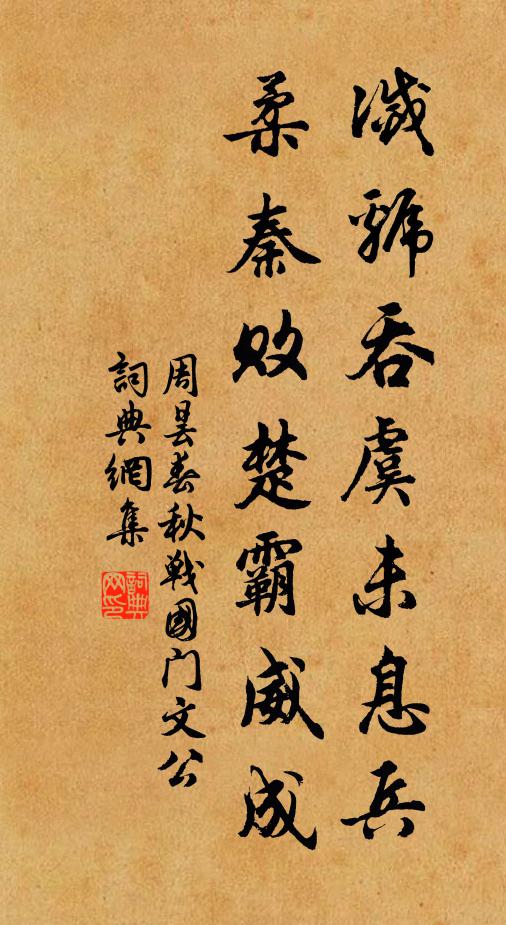 滅虢吞虞未息兵
柔秦敗楚霸威成
周曇春秋戰國門文公
詞典網集
詞典網印